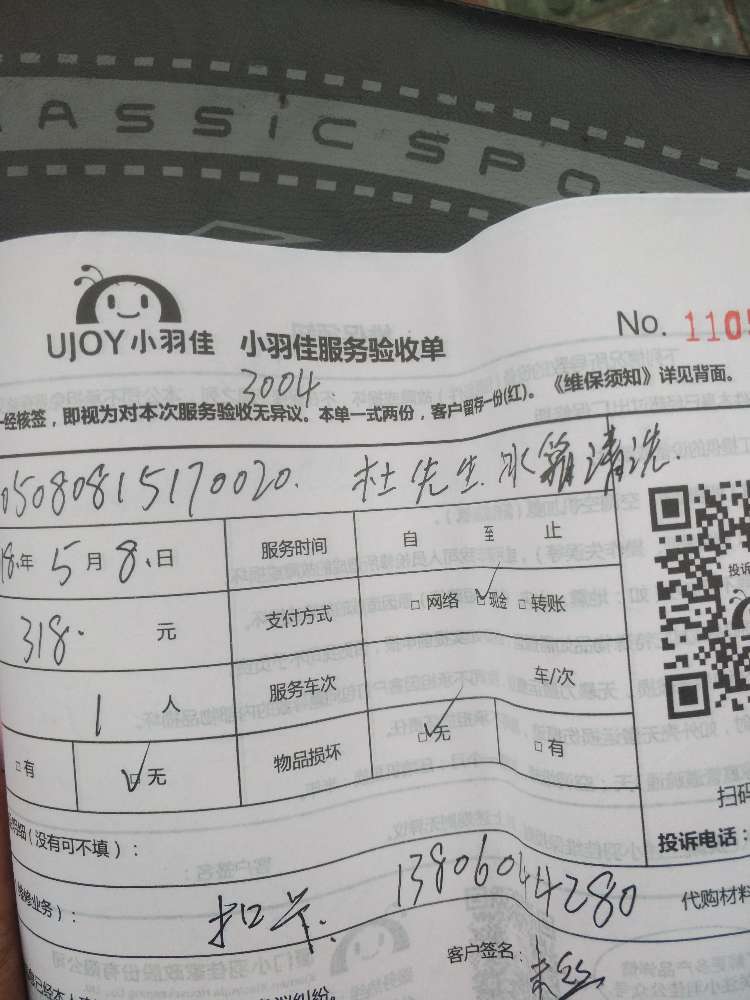 CLASSIC SPO
UJOY小羽佳 小羽佳服务验收单
No. 1105
3004
一经核签，即视为对本次服务验收无异议。本单一式两份，客户留存一份(红)。《维保须知》详见背面。
05080815170020. 杜先生 冰箱清洗.
18.年 5月 8.日 服务时间 自 至 止
318. 元 支付方式 □网络 ☑现金 □转账
1 人 服务车次 车/次
□有 ☑无 物品损坏 ☑无 □有
投诉
扫码
投诉电话：
明细（没有可不填）：
维修业务）： 扣卡. 13806044280 代购材料
客户签名：